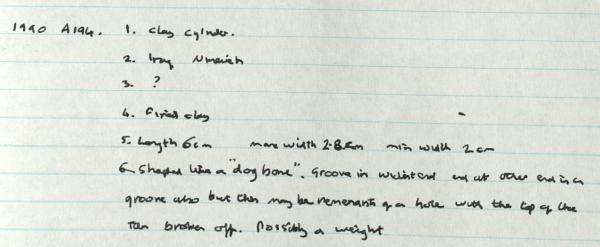 1990 A194. 1. Clay cylinder.
2. Iraq Nineveh
3. ?
4. Fired clay
5. Length 6cm max width 2.8cm min width 2cm
6. Shaped like a "dog bone". Groove in end at other end is a
groove also but this may be remenants of a hole with the top of the
broken off. Possibly a weight